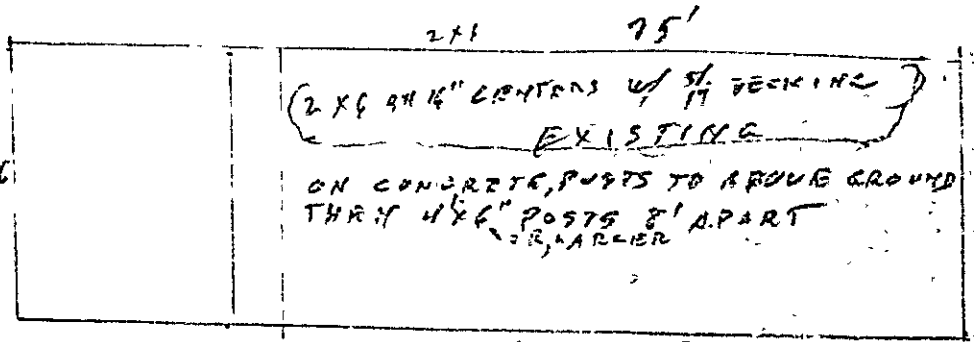 2x8 25'
2 X 6 ON 16" CENTERS W/ DECKING
EXISTING
6
ON CONCRETE, POSTS TO ABOVE GROUND
THEN 4"X6" POSTS 8' APART
OR, LARGER